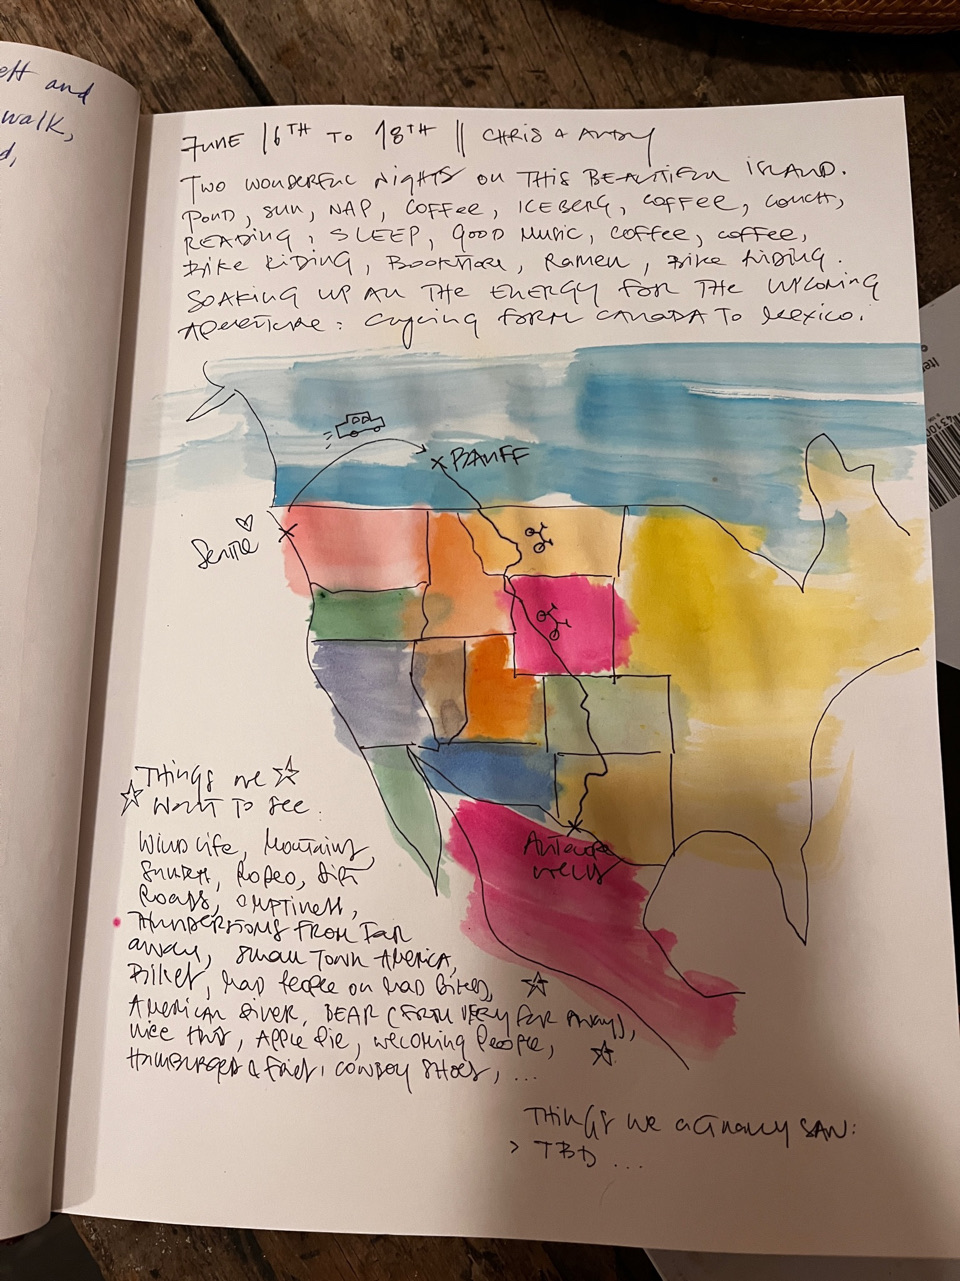 ett and
walk,
d,
JUNE 16TH TO 18TH || CHRIS & ANDY
TWO WONDERFUL NIGHTS ON THIS BEAUTIFUL ISLAND.
POND, SUN, NAP, COFFEE, ICEBERG, COFFEE, COUCH,
READING, SLEEP, GOOD MUSIC, COFFEE, COFFEE,
BIKE RIDING, BOOKSTORE, RAMEN, BIKE RIDING.
SOAKING UP ALL THE ENERGY FOR THE UPCOMING
ADVENTURE: CYCLING FORM CANADA TO MEXICO.
BANFF
Seattle
ANTELOPE
WELLS
THINGS WE
WANT TO SEE:
WILD LIFE, MOUNTAINS,
RODEO, DIRT
ROADS, EMPTINESS,
THUNDERSTORMS FROM FAR
AWAY, SMALL TOWN AMERICA,
MAD PEOPLE ON MAD BIKES,
AMERICAN DINER, BEAR (FROM VERY FAR AWAY),
APPLE PIE, WELCOMING PEOPLE,
HAMBURGER & FRIES, COWBOY SHOES, ...
THINGS WE ACTUALLY SAW:
> TBD ...